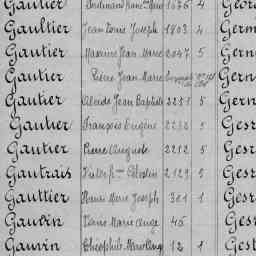 Gaultier Ferdinand 1676 4 Geor
Gaultier Jean Louis Joseph 1803 4 Germ
Gautier Maxime Jean Marie 2047 5 Gern
Gautier Pierre Jean Marie Gern
Gautier Alcide Jean Baptiste 2251 5 Gern
Gautier François Eugène 2232 5 Gesr
Gautier Pierre Auguste 2212 5 Gesr
Gautrais Victor Célestin 2129 5 Gesr
Gauttier Henri Marie Joseph 381 1 Gesr
Gauvin Marie Ange 45 Gesr
Gauvin Théophile 12 1 Gest